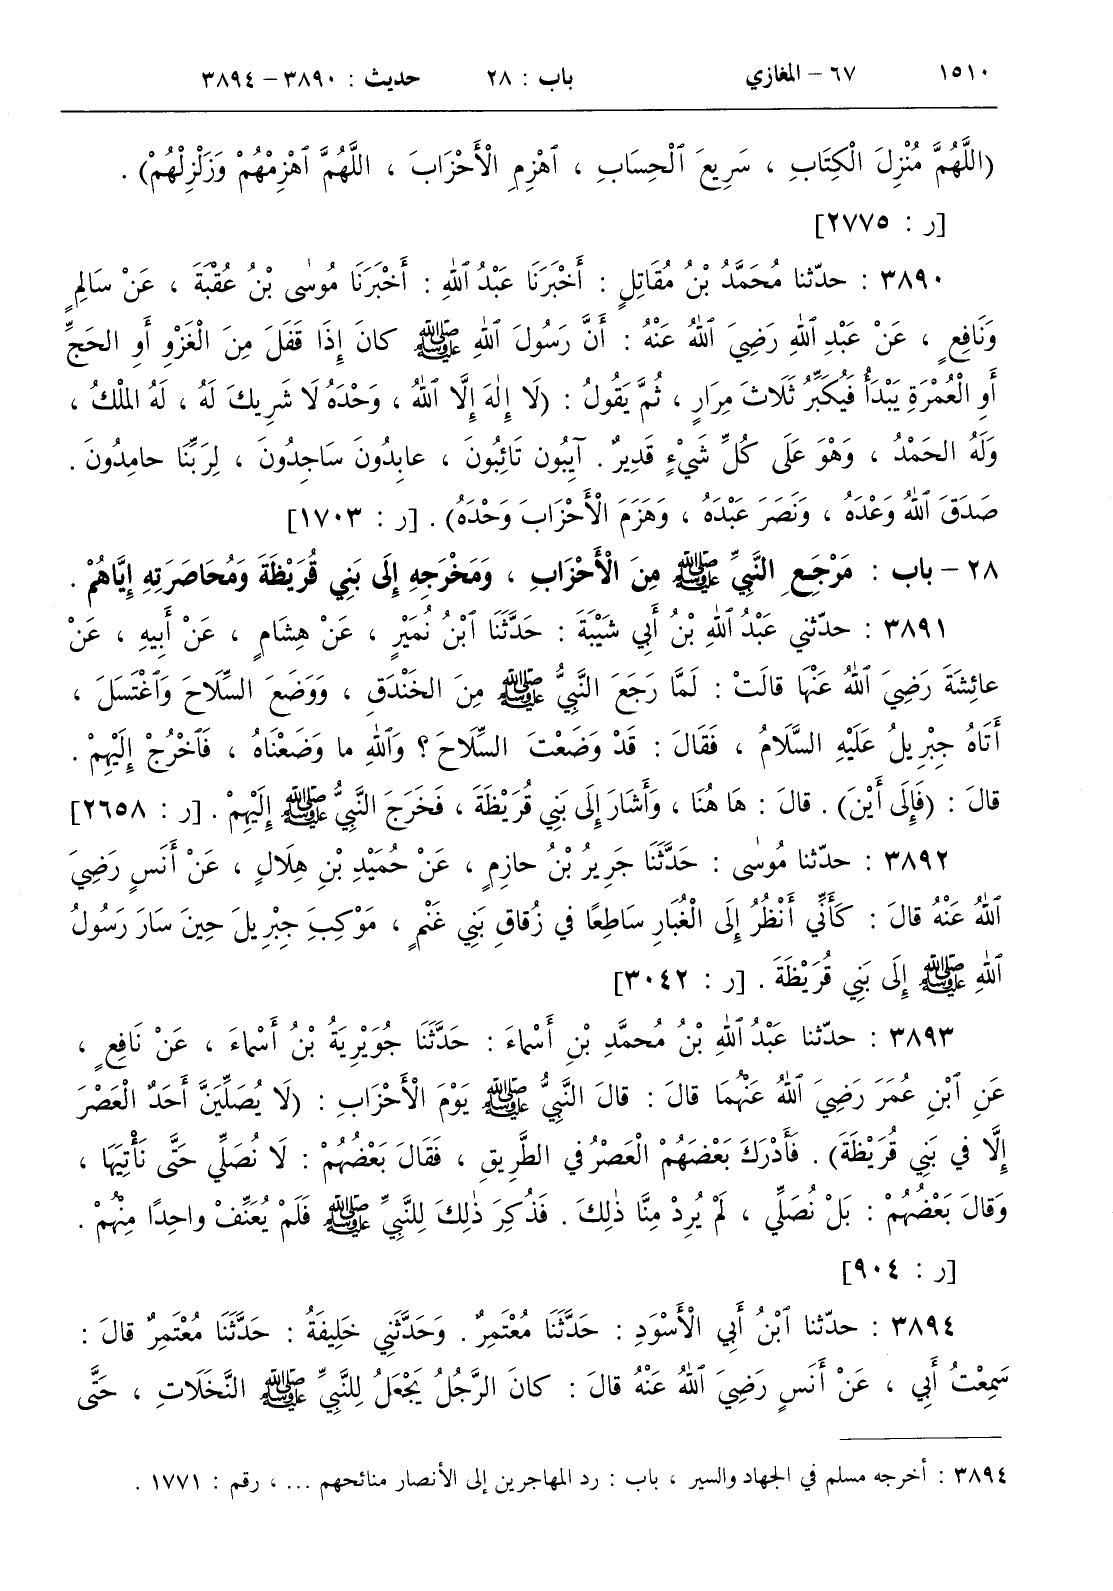 ١٥١٠ ٦٧ – المغازي باب : ٢٨ حديث : ٣٨٩٠ – ٣٨٩٤
(اللَّهُمَّ مُنْزِلَ الْكِتَابِ ، سَرِيعَ ٱلْحِسَابِ ، ٱهْزِمِ الْأَحْزَابَ ، اللَّهُمَّ ٱهْزِمْهُمْ وَزَلْزِلْهُمْ) .
[ر : ٢٧٧٥]
٣٨٩٠ : حدّثنا مُحَمَّدُ بْنُ مُقَاتِلٍ : أَخْبَرَنَا عَبْدُ ٱللهِ : أَخْبَرَنَا مُوسٰى بْنُ عُقْبَةَ ، عَنْ سَالِمٍ
وَنَافِعٍ ، عَنْ عَبْدِ ٱللهِ رَضِيَ ٱللهُ عَنْهُ : أَنَّ رَسُولَ ٱللهِ ﷺ كانَ إِذَا قَفَلَ مِنَ الْغَزْوِ أَوِ الحَجِّ
أَوِ الْعُمْرَةِ يَبْدَأُ فَيُكَبِّرُ ثَلَاثَ مِرَارٍ ، ثُمَّ يَقُولُ : (لَا إِلٰهَ إِلَّا ٱللهُ ، وَحْدَهُ لَا شَرِيكَ لَهُ ، لَهُ المُلْكُ ،
وَلَهُ الحَمْدُ ، وَهْوَ عَلَى كُلِّ شَيْءٍ قَدِيرٌ . آيِبُونَ تَائِبُونَ ، عابِدُونَ سَاجِدُونَ ، لِرَبِّنَا حامِدُونَ .
صَدَقَ ٱللهُ وَعْدَهُ ، وَنَصَرَ عَبْدَهُ ، وَهَزَمَ الْأَحْزَابَ وَحْدَهُ) . [ر : ١٧٠٣]
٢٨ – باب : مَرْجَعِ النَّبِيِّ ﷺ مِنَ الْأَحْزَابِ ، وَمَخْرَجِهِ إِلَى بَنِي قُرَيْظَةَ وَمُحَاصَرَتِهِ إِيَّاهُمْ .
٣٨٩١ : حدّثني عَبْدُ ٱللهِ بْنُ أَبِي شَيْبَةَ : حَدَّثَنَا ٱبْنُ نُمَيْرٍ ، عَنْ هِشَامٍ ، عَنْ أَبِيهِ ، عَنْ
عائِشَةَ رَضِيَ ٱللهُ عَنْهَا قالَتْ : لَمَّا رَجَعَ النَّبِيُّ ﷺ مِنَ الخَنْدَقِ ، وَوَضَعَ السِّلَاحَ وَٱغْتَسَلَ ،
أَتَاهُ جِبْرِيلُ عَلَيْهِ السَّلَامُ ، فَقَالَ : قَدْ وَضَعْتَ السِّلَاحَ ؟ وَٱللهِ ما وَضَعْنَاهُ ، فَٱخْرُجْ إِلَيْهِمْ .
قالَ : (فَإِلَى أَيْنَ) . قالَ : هَا هُنَا ، وَأَشَارَ إِلَى بَنِي قُرَيْظَةَ ، فَخَرَجَ النَّبِيُّ ﷺ إِلَيْهِمْ . [ر : ٢٦٥٨]
٣٨٩٢ : حدّثنا مُوسٰى : حَدَّثَنَا جَرِيرُ بْنُ حازِمٍ ، عَنْ حُمَيْدِ بْنِ هِلَالٍ ، عَنْ أَنَسٍ رَضِيَ
ٱللهُ عَنْهُ قالَ : كَأَنِّي أَنْظُرُ إِلَى الْغُبَارِ سَاطِعًا في زُقاقِ بَنِي غَنْمٍ ، مَوْكِبِ جِبْرِيلَ حِينَ سَارَ رَسُولُ
ٱللهِ ﷺ إِلَى بَنِي قُرَيْظَةَ . [ر : ٣٠٤٢]
٣٨٩٣ : حدّثنا عَبْدُ ٱللهِ بْنُ مُحمَّدِ بْنِ أَسْمَاءَ : حَدَّثَنَا جُوَيْرِيَةُ بْنُ أَسْمَاءَ ، عَنْ نَافِعٍ ،
عَنِ ٱبْنِ عُمَرَ رَضِيَ ٱللهُ عَنْهُمَا قالَ : قالَ النَّبِيُّ ﷺ يَوْمَ الْأَحْزَابِ : (لَا يُصَلِّيَنَّ أَحَدٌ الْعَصْرَ
إِلَّا في بَنِي قُرَيْظَةَ) . فَأَدْرَكَ بَعْضَهُمْ الْعَصْرُ في الطَّرِيقِ ، فَقَالَ بَعْضُهُمْ : لَا نُصَلِّي حَتَّى نَأْتِيَهَا ،
وَقالَ بَعْضُهُمْ : بَلْ نُصَلِّي ، لَمْ يُرِدْ مِنَّا ذٰلِكَ . فَذُكِرَ ذٰلِكَ لِلنَّبِيِّ ﷺ فَلَمْ يُعَنِّفْ واحِدًا مِنْهُمْ .
[ر : ٩٠٤]
٣٨٩٤ : حدّثنا ٱبْنُ أَبِي الْأَسْوَدِ : حَدَّثَنَا مُعْتَمِرٌ . وَحَدَّثَنِي خَلِيفَةُ : حَدَّثَنَا مُعْتَمِرٌ قالَ :
سَمِعْتُ أَبِي ، عَنْ أَنَسٍ رَضِيَ ٱللهُ عَنْهُ قالَ : كانَ الرَّجُلُ يَجْعَلُ لِلنَّبِيِّ ﷺ النَّخَلَاتِ ، حَتَّى
٣٨٩٤ : أخرجه مسلم في الجهاد والسير ، باب : رد المهاجرين إلى الأنصار منائحهم ... ، رقم : ١٧٧١ .